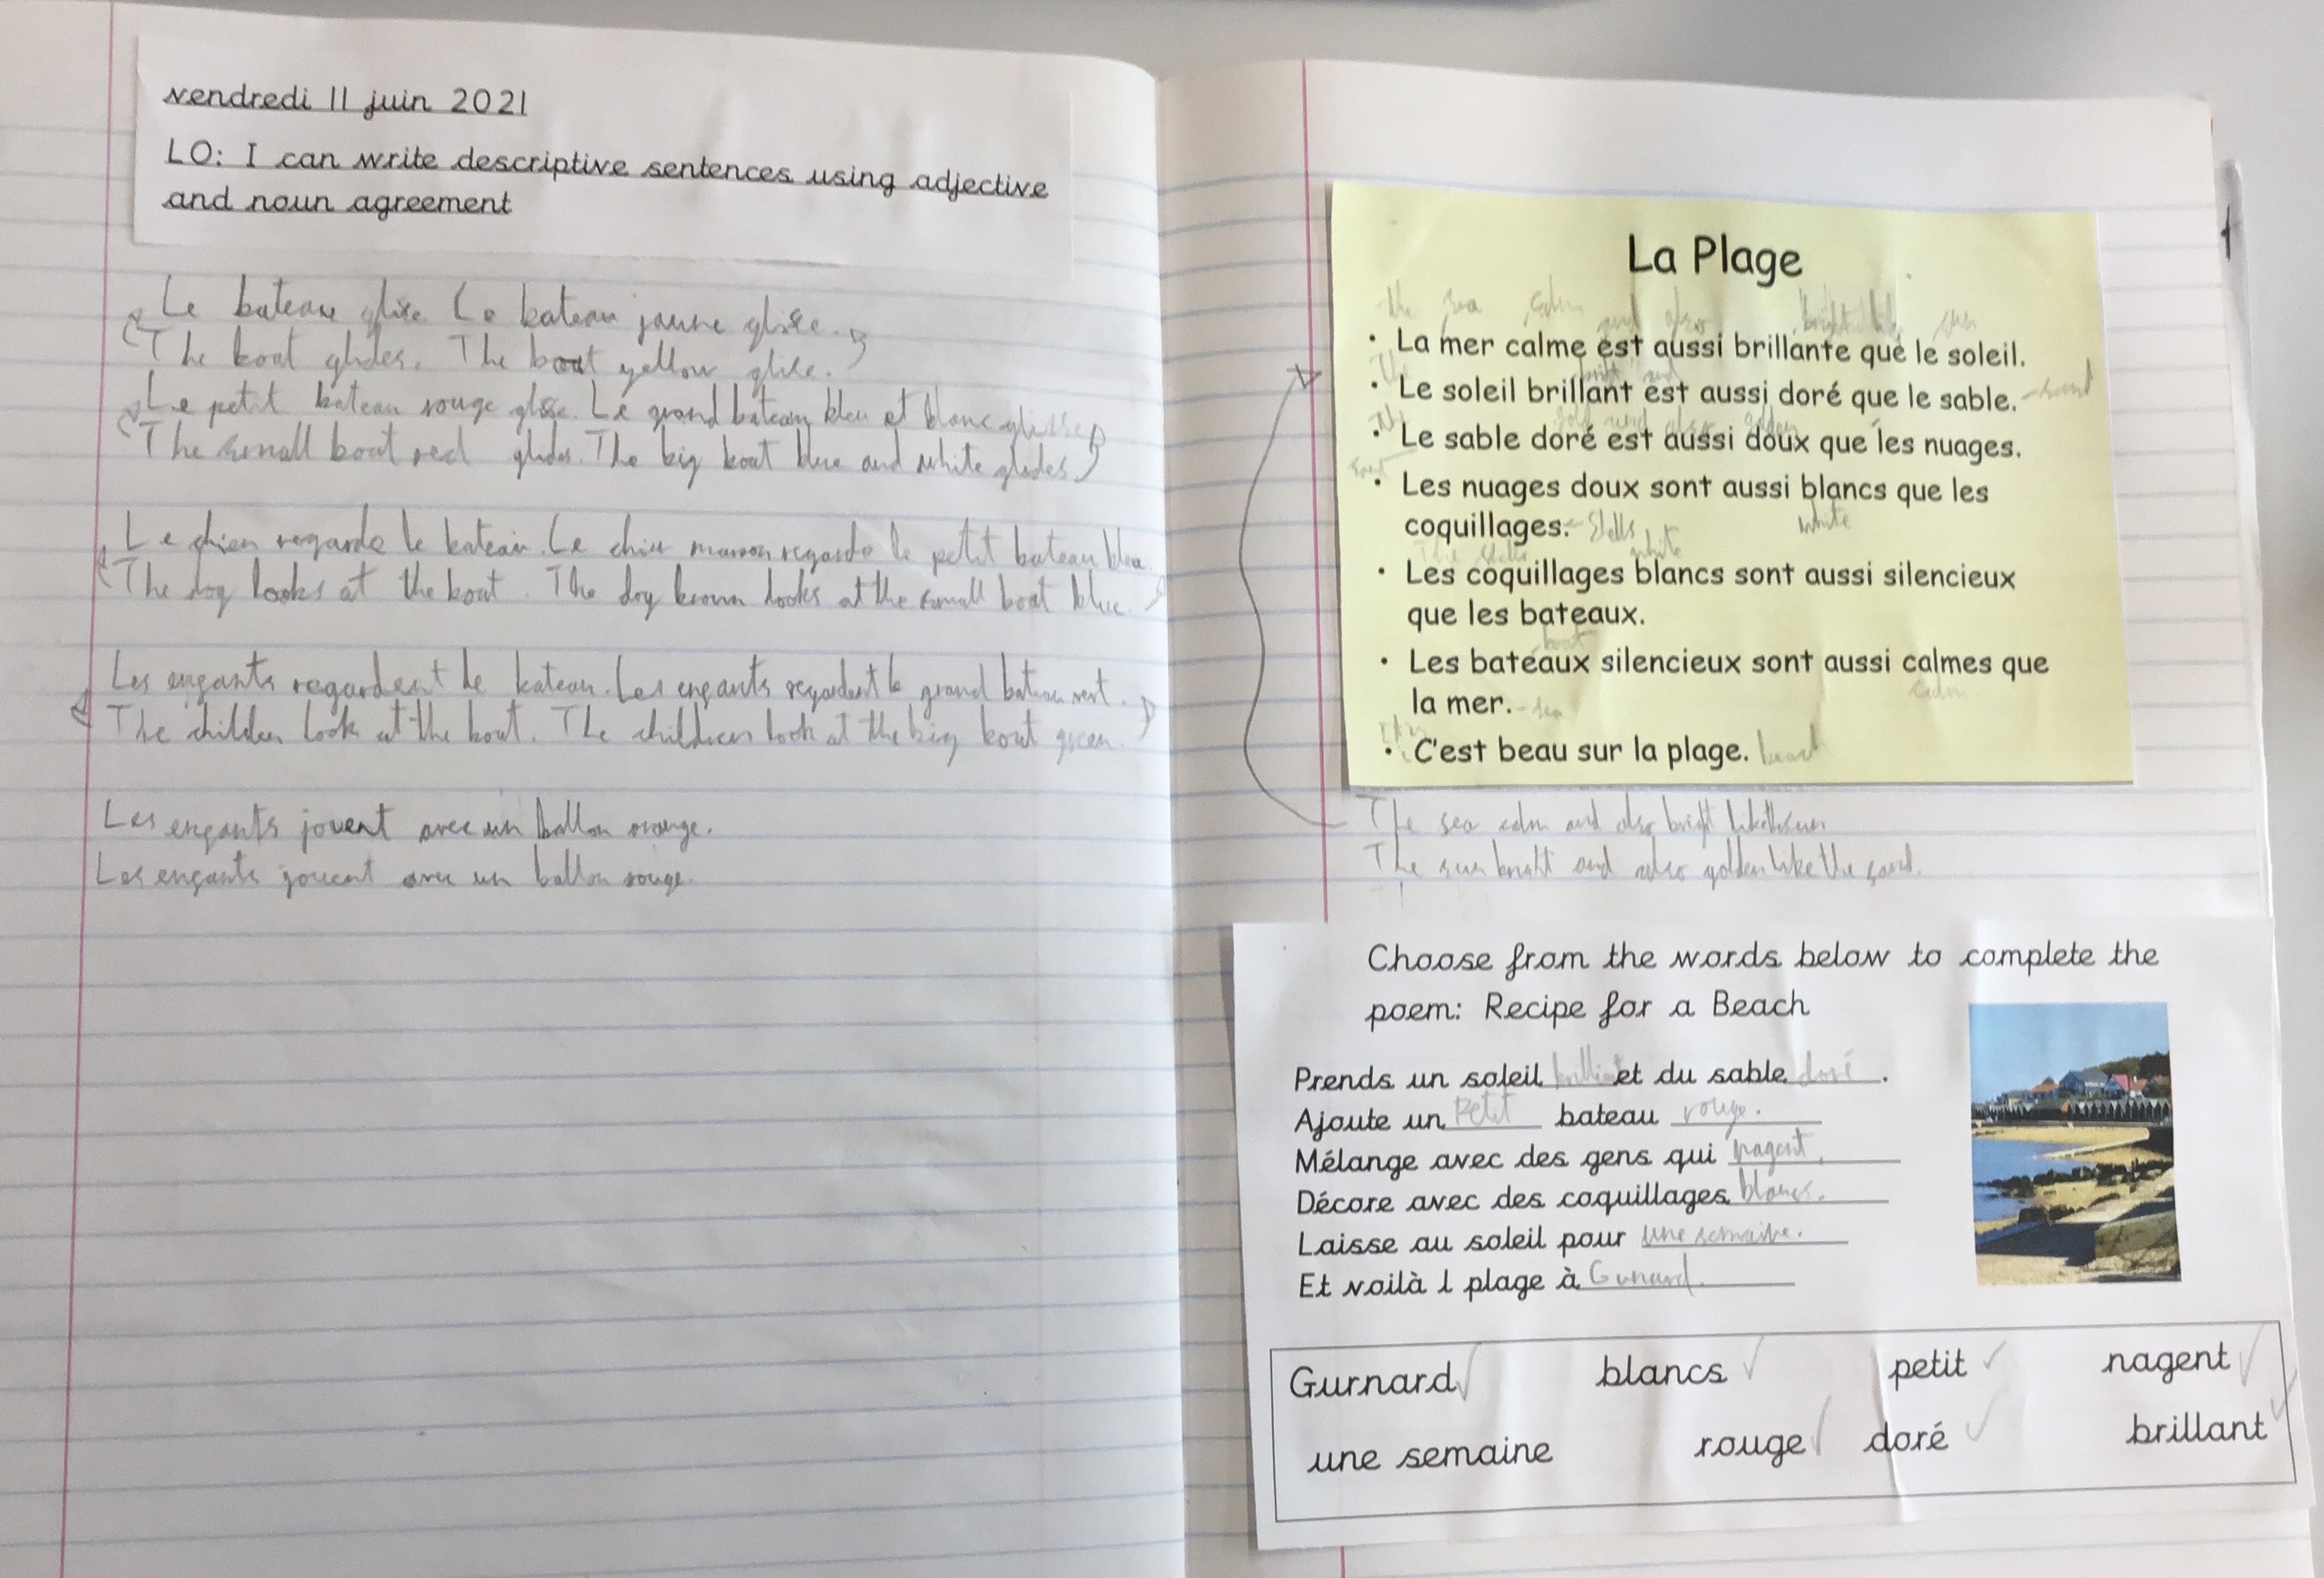 vendredi 11 juin 2021
LO: I can write descriptive sentences using adjective
and noun agreement
Le bateau glise. Le bateau jaune glise.
The boat glides. The boat yellow glise.
Le petit bateau rouge glisse. Le grand bateau bleu et blanc glisse
The small boat red glides. The big boat blue and white glides.
Le chien regarde le bateau. Le chien marron regarde le petit bateau bleu.
The dog looks at the boat. The dog brown looks at the small boat blue.
Les enfants regardent le bateau. Les enfants regardent le grand bateau vert.
The children look at the boat. The children look at the big boat green.
Les enfants jouent avec un ballon orange.
Les enfants jouent avec un ballon rouge.
La Plage
the sea calm and also bright like sun
• La mer calme est aussi brillante que le soleil.
The bright and
• Le soleil brillant est aussi doré que le sable. - sand
The gold and also golden
• Le sable doré est aussi doux que les nuages.
• Les nuages doux sont aussi blancs que les
coquillages. - Shells white
The shells white
• Les coquillages blancs sont aussi silencieux
que les bateaux.
boat
• Les bateaux silencieux sont aussi calmes que
calm
la mer. - sea
• C'est beau sur la plage. beach
The sea calm and also bright like the sun
The sun bright and also golden like the sand.
Choose from the words below to complete the
poem: Recipe for a Beach
Prends un soleil brilliant et du sable doré.
Ajoute un Petit bateau rouge.
Mélange avec des gens qui nagent.
Décore avec des coquillages blancs.
Laisse au soleil pour une semaine.
Et voilà l plage à Gunard.
Gurnard blancs petit nagent
une semaine rouge doré brillant